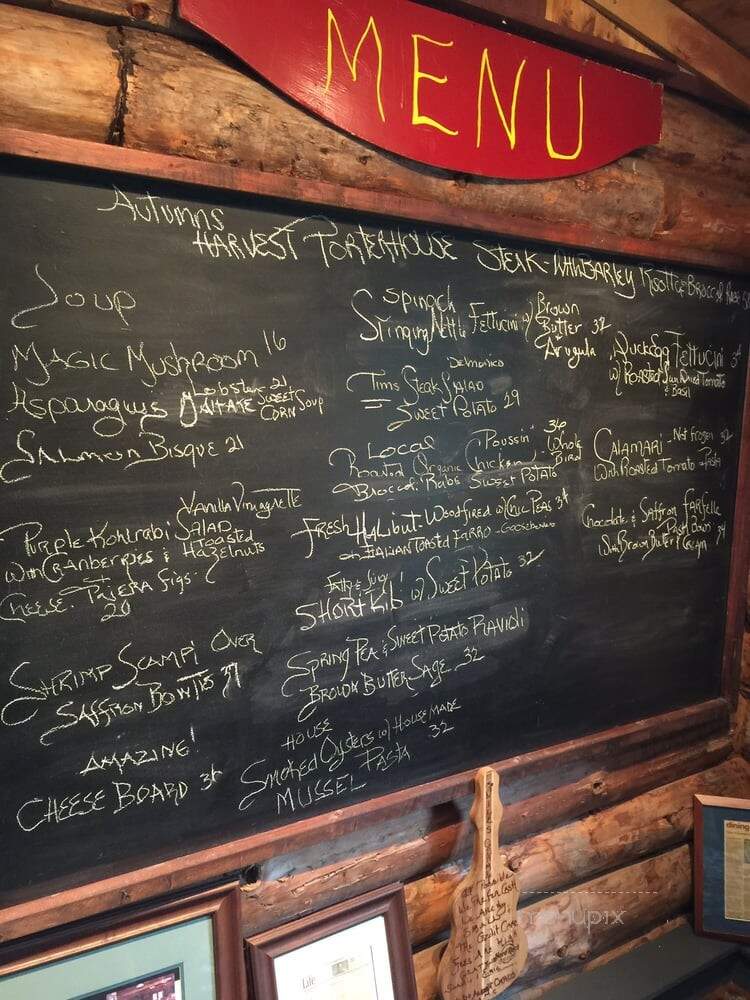 MENU
AUTUMNS
HARVEST PORTERHOUSE STEAK - W/ BARLEY
SOUP
MAGIC MUSHROOM 16
LOBSTER 21
ASPARAGUS SWEET
CORN SOUP
SALMON BISQUE 21
VANILLA VINAIGRETTE
PURPLE KOHLRABI SALAD
WITH CRANBERRIES & TOASTED
HAZELNUTS
CHEESE. FIGS.
20
SHRIMP SCAMPI OVER
SAFFRON BOWTIES
AMAZING!
CHEESE BOARD
SPINACH
STINGING NETTLE FETTUCINI W/ BROWN
BUTTER 32
+ ARUGULA
DELMONICO
TIMS STEAK SALAD
SWEET POTATO 29
LOCAL POUSSIN 36
ROASTED ORGANIC CHICKEN - WHOLE
BIRD
BROCCOLI RABE SWEET POTATO
FRESH HALIBUT - WOODFIRED W/ CHIC PEAS 34
ITALIAN TOASTED FARRO -
FATTY & JUICY
SHORT RIB W/ SWEET POTATO 32
SPRING PEA & SWEET POTATO RAVIOLI
BROWN BUTTER SAGE 32
HOUSE
SMOKED OYSTERS W/ HOUSEMADE
PASTA 32
MUSSEL
DUCK EGG FETTUCINI
W/ ROASTED SUN DRIED TOMATO
& BASIL
CALAMARI - NOT FROZEN 32
WITH ROASTED TOMATO - PASTA
CHOCOLATE & SAFFRON FARFELLE
WITH BROWN BUTTER CREAM
Life